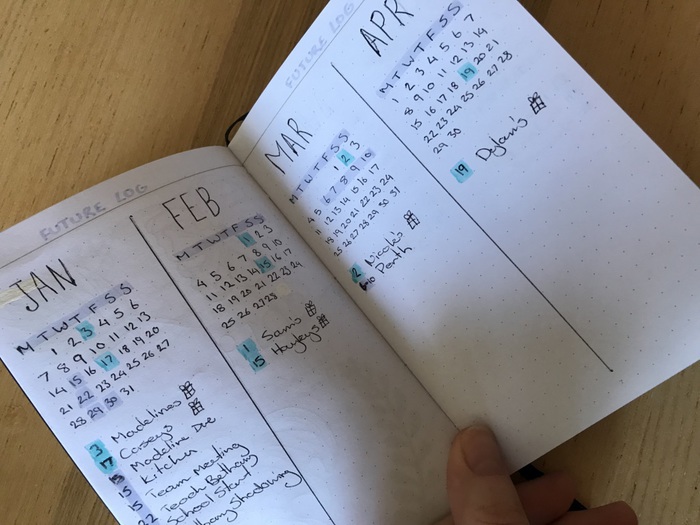 FUTURE LOG
JAN
M T W T F S S
1 2 3 4 5 6
7 8 9 10 11 12 13
14 15 16 17 18 19 20
21 22 23 24 25 26 27
28 29 30 31
3 Madelines
17 Caseys
15 Madeline Due
15 Kitchen
15 Team Meeting
22 Teach Bethany
School Starts
Shadowing
FEB
M T W T F S S
1 2 3
4 5 6 7 8 9 10
11 12 13 14 15 16 17
18 19 20 21 22 23 24
25 26 27 28
1 Sam's
15 Hayleys
FUTURE LOG
MAR
M T W T F S S
1 2 3
4 5 6 7 8 9 10
11 12 13 14 15 16 17
18 19 20 21 22 23 24
25 26 27 28 29 30 31
2 Nicole's
Perth
APR
M T W T F S S
1 2 3 4 5 6 7
8 9 10 11 12 13 14
15 16 17 18 19 20 21
22 23 24 25 26 27 28
29 30
19 Dylan's